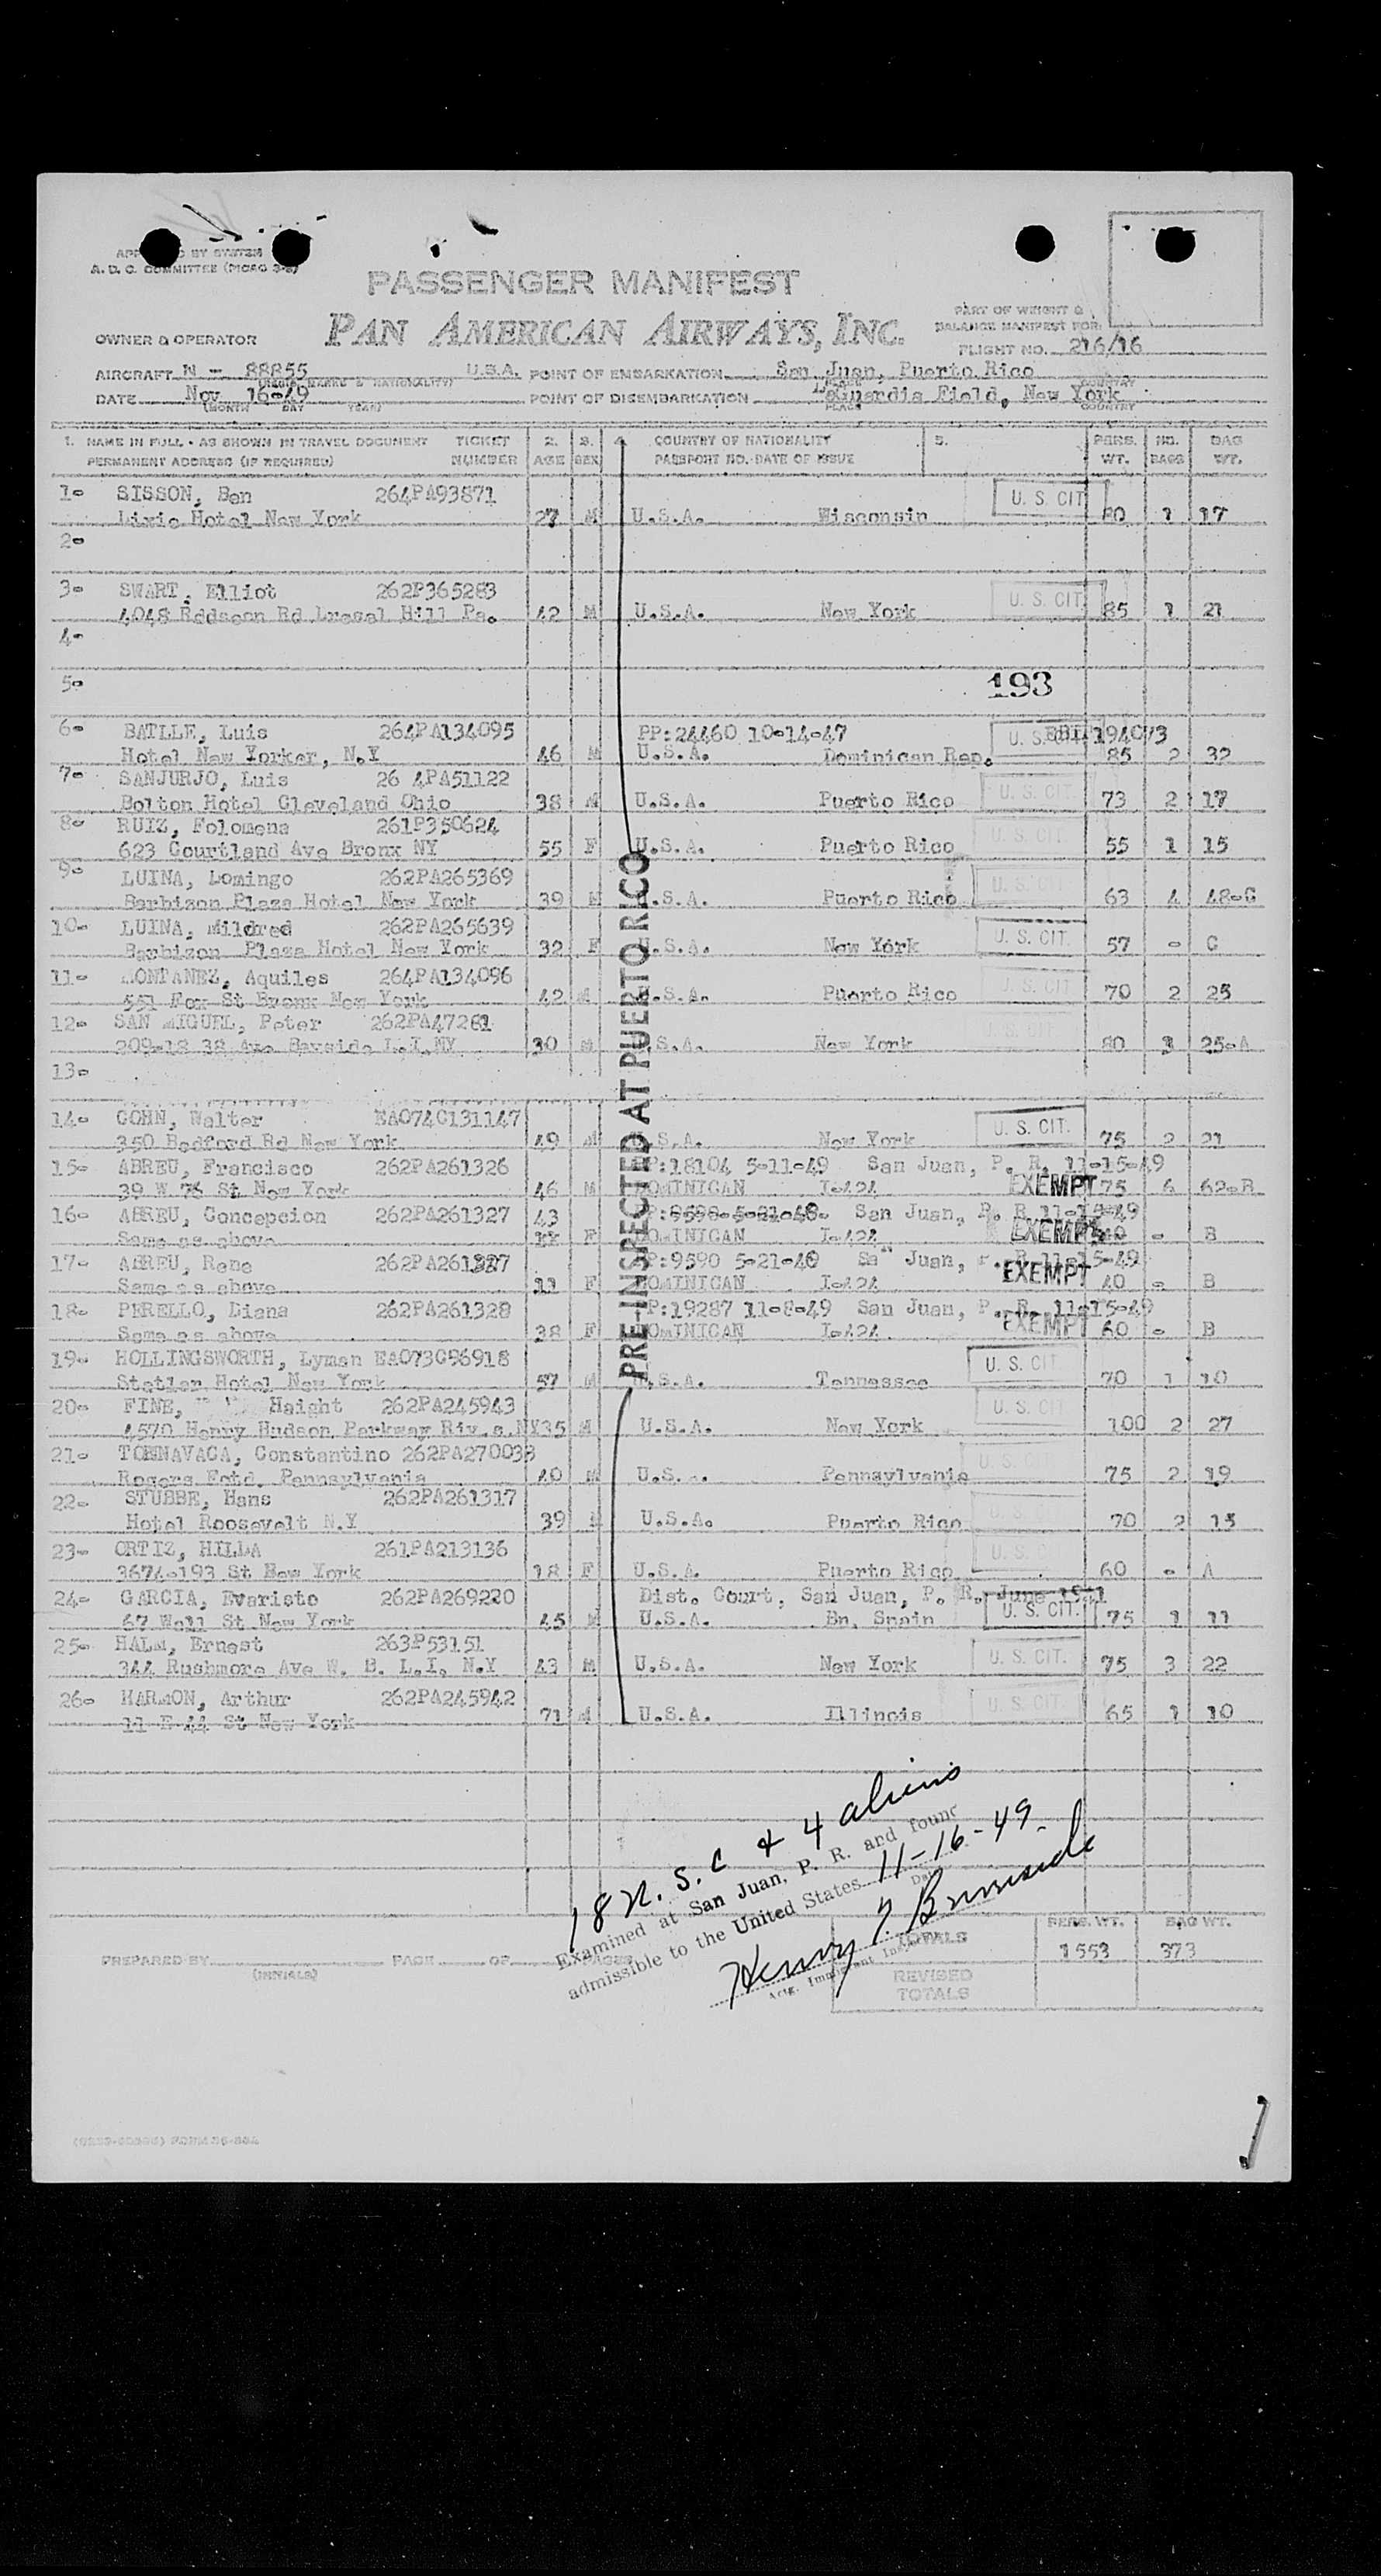 A. D. C. COMMITTEE
PASSENGER MANIFEST
PART OF WEIGHT &
BALANCE MANIFEST FOR:
OWNER & OPERATOR PAN AMERICAN AIRWAYS, INC.
FLIGHT NO. 216/16
AIRCRAFT N - 88855 U.S.A. POINT OF EMBARKATION San Juan, Puerto Rico
(MARKS & NATIONALITY) PLACE COUNTRY
DATE Nov 16-49 POINT OF DISEMBARKATION LaGuardia Field, New York
(MONTH DAY YEAR) PLACE COUNTRY
1. NAME IN FULL - AS SHOWN IN TRAVEL DOCUMENT TICKET 2. 3. 4. COUNTRY OF NATIONALITY 5. PERS. NO. BAG
PERMANENT ADDRESS (IF REQUIRED) NUMBER AGE SEX PASSPORT NO. DATE OF ISSUE WT. BAGS WT.
1- SISSON, Ben 264PA93871 U. S. CIT
Hotel New York 27 M U.S.A. Wisconsin 80 1 17
2-
3- SWART, Elliot 262P365283 U. S. CIT
4048 Rd Hill Pa. 42 M U.S.A. New York 85 1 21
4-
5- 193
6- BATLLE, Luis 264PA134095 PP:24460 10-14-47 U. S.
Hotel New Yorker, N.Y 46 M U.S.A. Dominican Rep. 85 2 32
7- SANJURJO, Luis 26 4PA51122 U. S. CIT.
Bolton Hotel Cleveland Ohio 38 M U.S.A. Puerto Rico 73 2 17
8- RUIZ, Folomena 261P350624 U. S. CIT.
623 Courtland Ave Bronx NY 55 F U.S.A. Puerto Rico 55 1 15
9- LUINA, Domingo 262PA265369 U. S. CIT
Barbizon Plaza Hotel New York 39 M .S.A. Puerto Rico 63 4 48-C
10- LUINA, Mildred 262PA265639 U. S. CIT.
Barbizon Plaza Hotel New York 32 F U.S.A. New York 57 - C
11- MONTANEZ, Aquiles 264PA134096 U. S. CIT
551 Fox St Bronx New York 42 M .S.A. Puerto Rico 70 2 25
12- SAN MIGUEL, Peter 262PA47281 U. S. CIT.
209-18 38 Ave Bayside L.I.NY 30 M .S.A. New York 80 3 25-A
13-
14- COHN, Walter EA074C131147 U. S. CIT.
350 Bedford Rd New York 49 M .S.A. New York 75 2 21
15- ABREU, Francisco 262PA261326 PP:18104 5-11-49 San Juan, P. R. 11-15-49
39 W 76 St New York 46 M DOMINICAN I-424 EXEMPT 75 6 62-B
16- ABREU, Concepcion 262PA261327 43 P:9590-5-21-48- San Juan, P. R 11-15-49
Same as above F DOMINICAN I-424 EXEMPT - B
17- ABREU, Rene 262PA261327 P:9590 5-21-48 San Juan, P. R 11-15-49
Same as above 11 F DOMINICAN I-424 EXEMPT 40 - B
18- PERELLO, Diana 262PA261328 P:19287 11-8-49 San Juan, P. R. 11-15-49
Same as above 38 F DOMINICAN I-424 EXEMPT 60 - B
19- HOLLINGSWORTH, Lyman EA073C96918 U. S. CIT
Statler Hotel New York 57 M U.S.A. Tennessee 70 1 10
20- FINE, Haight 262PA245943 U. S. CIT
4570 Henry Hudson Parkway NY 35 M U.S.A. New York 100 2 27
21- Constantino 262PA270038 U. S. CIT
Rogers Pennsylvania 40 M U.S. . Pennsylvania 75 2 19
22- STUBBE, Hans 262PA261317 U. S.
Hotel Roosevelt N.Y 39 M U.S.A. Puerto Rico 70 2 15
23- ORTIZ, HILDA 261PA213136 U. S.
3674-193 St New York 18 F U.S.A. Puerto Rico 60 - A
24- GARCIA, Evaristo 262PA269220 Dist. Court, San Juan, P. R.
67 Wall St New York 45 M U.S.A. Bn. Spain U. S. CIT. 75 1 11
25- HALM, Ernest 263P53151 U. S. CIT.
344 Rushmore Ave W. B. L.I. N.Y 43 M U.S.A. New York 75 3 22
26- HARMON, Arthur 262PA245942 U. S. CIT.
11 E 44 St New York 71 M U.S.A. Illinois 65 1 10
PRE-INSPECTED AT PUERTO RICO
18 U. S. C & 4 aliens
Examined at San Juan, P. R. and found
admissible to the United States 11-16-49
Date
Henry
Actg. Immigrant Inspector
PERS. WT. BAG WT.
TOTALS 1553 373
PREPARED BY (INITIALS) PAGE OF PAGES
REVISED
TOTALS